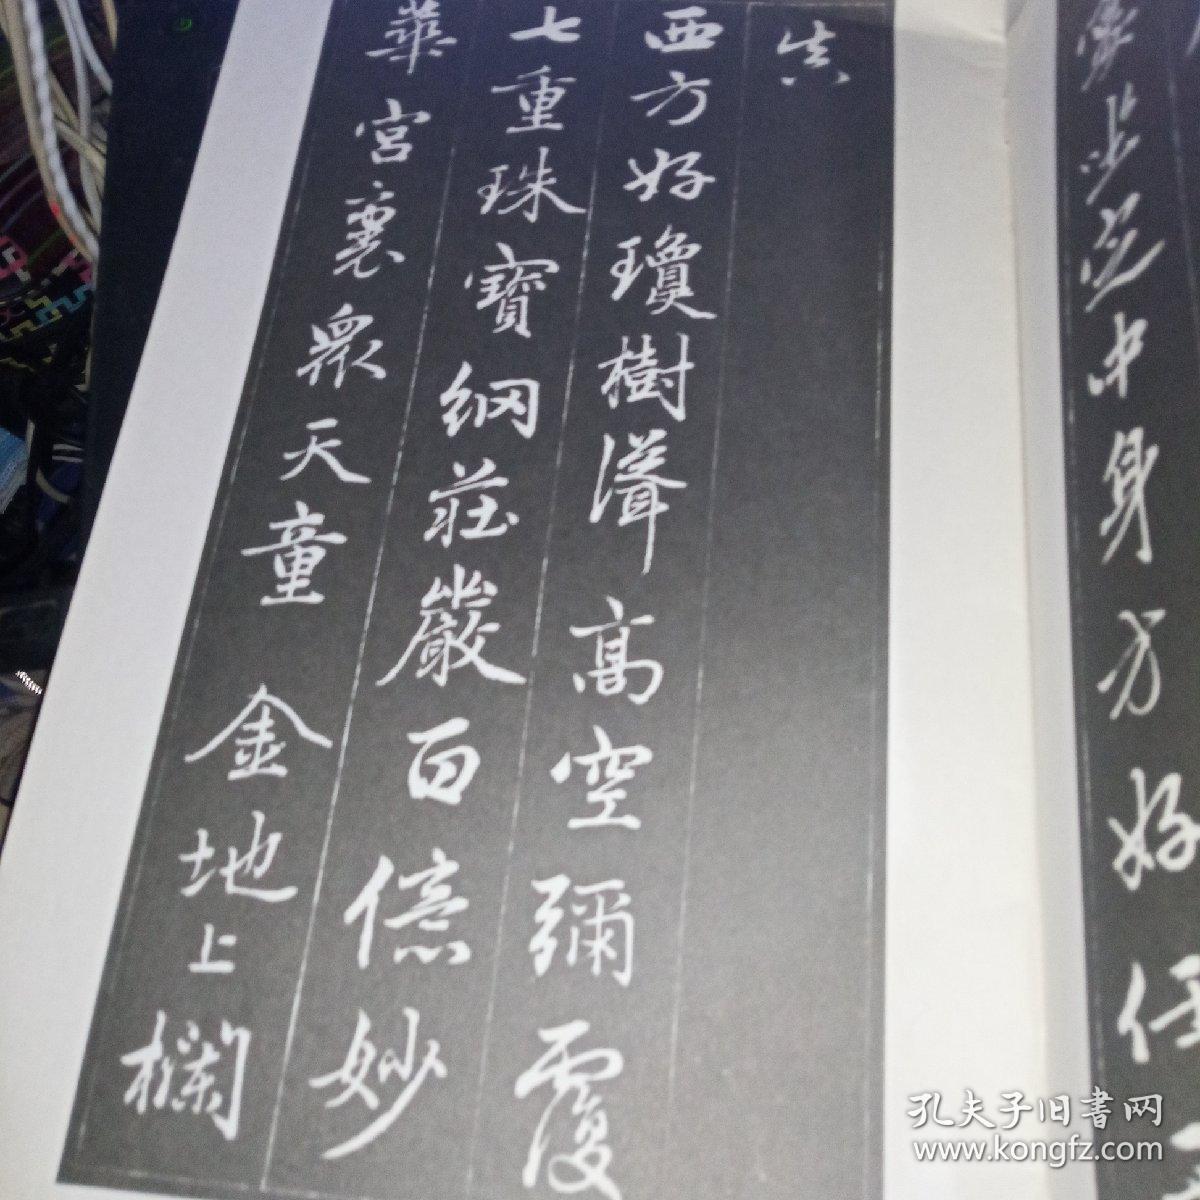 中身方好任
真
西方好瓊樹聳高空彌覆
七重珠寶網莊嚴百億妙
華宮裏衆天童 金地上欄
孔夫子旧書网
www.kongfz.com